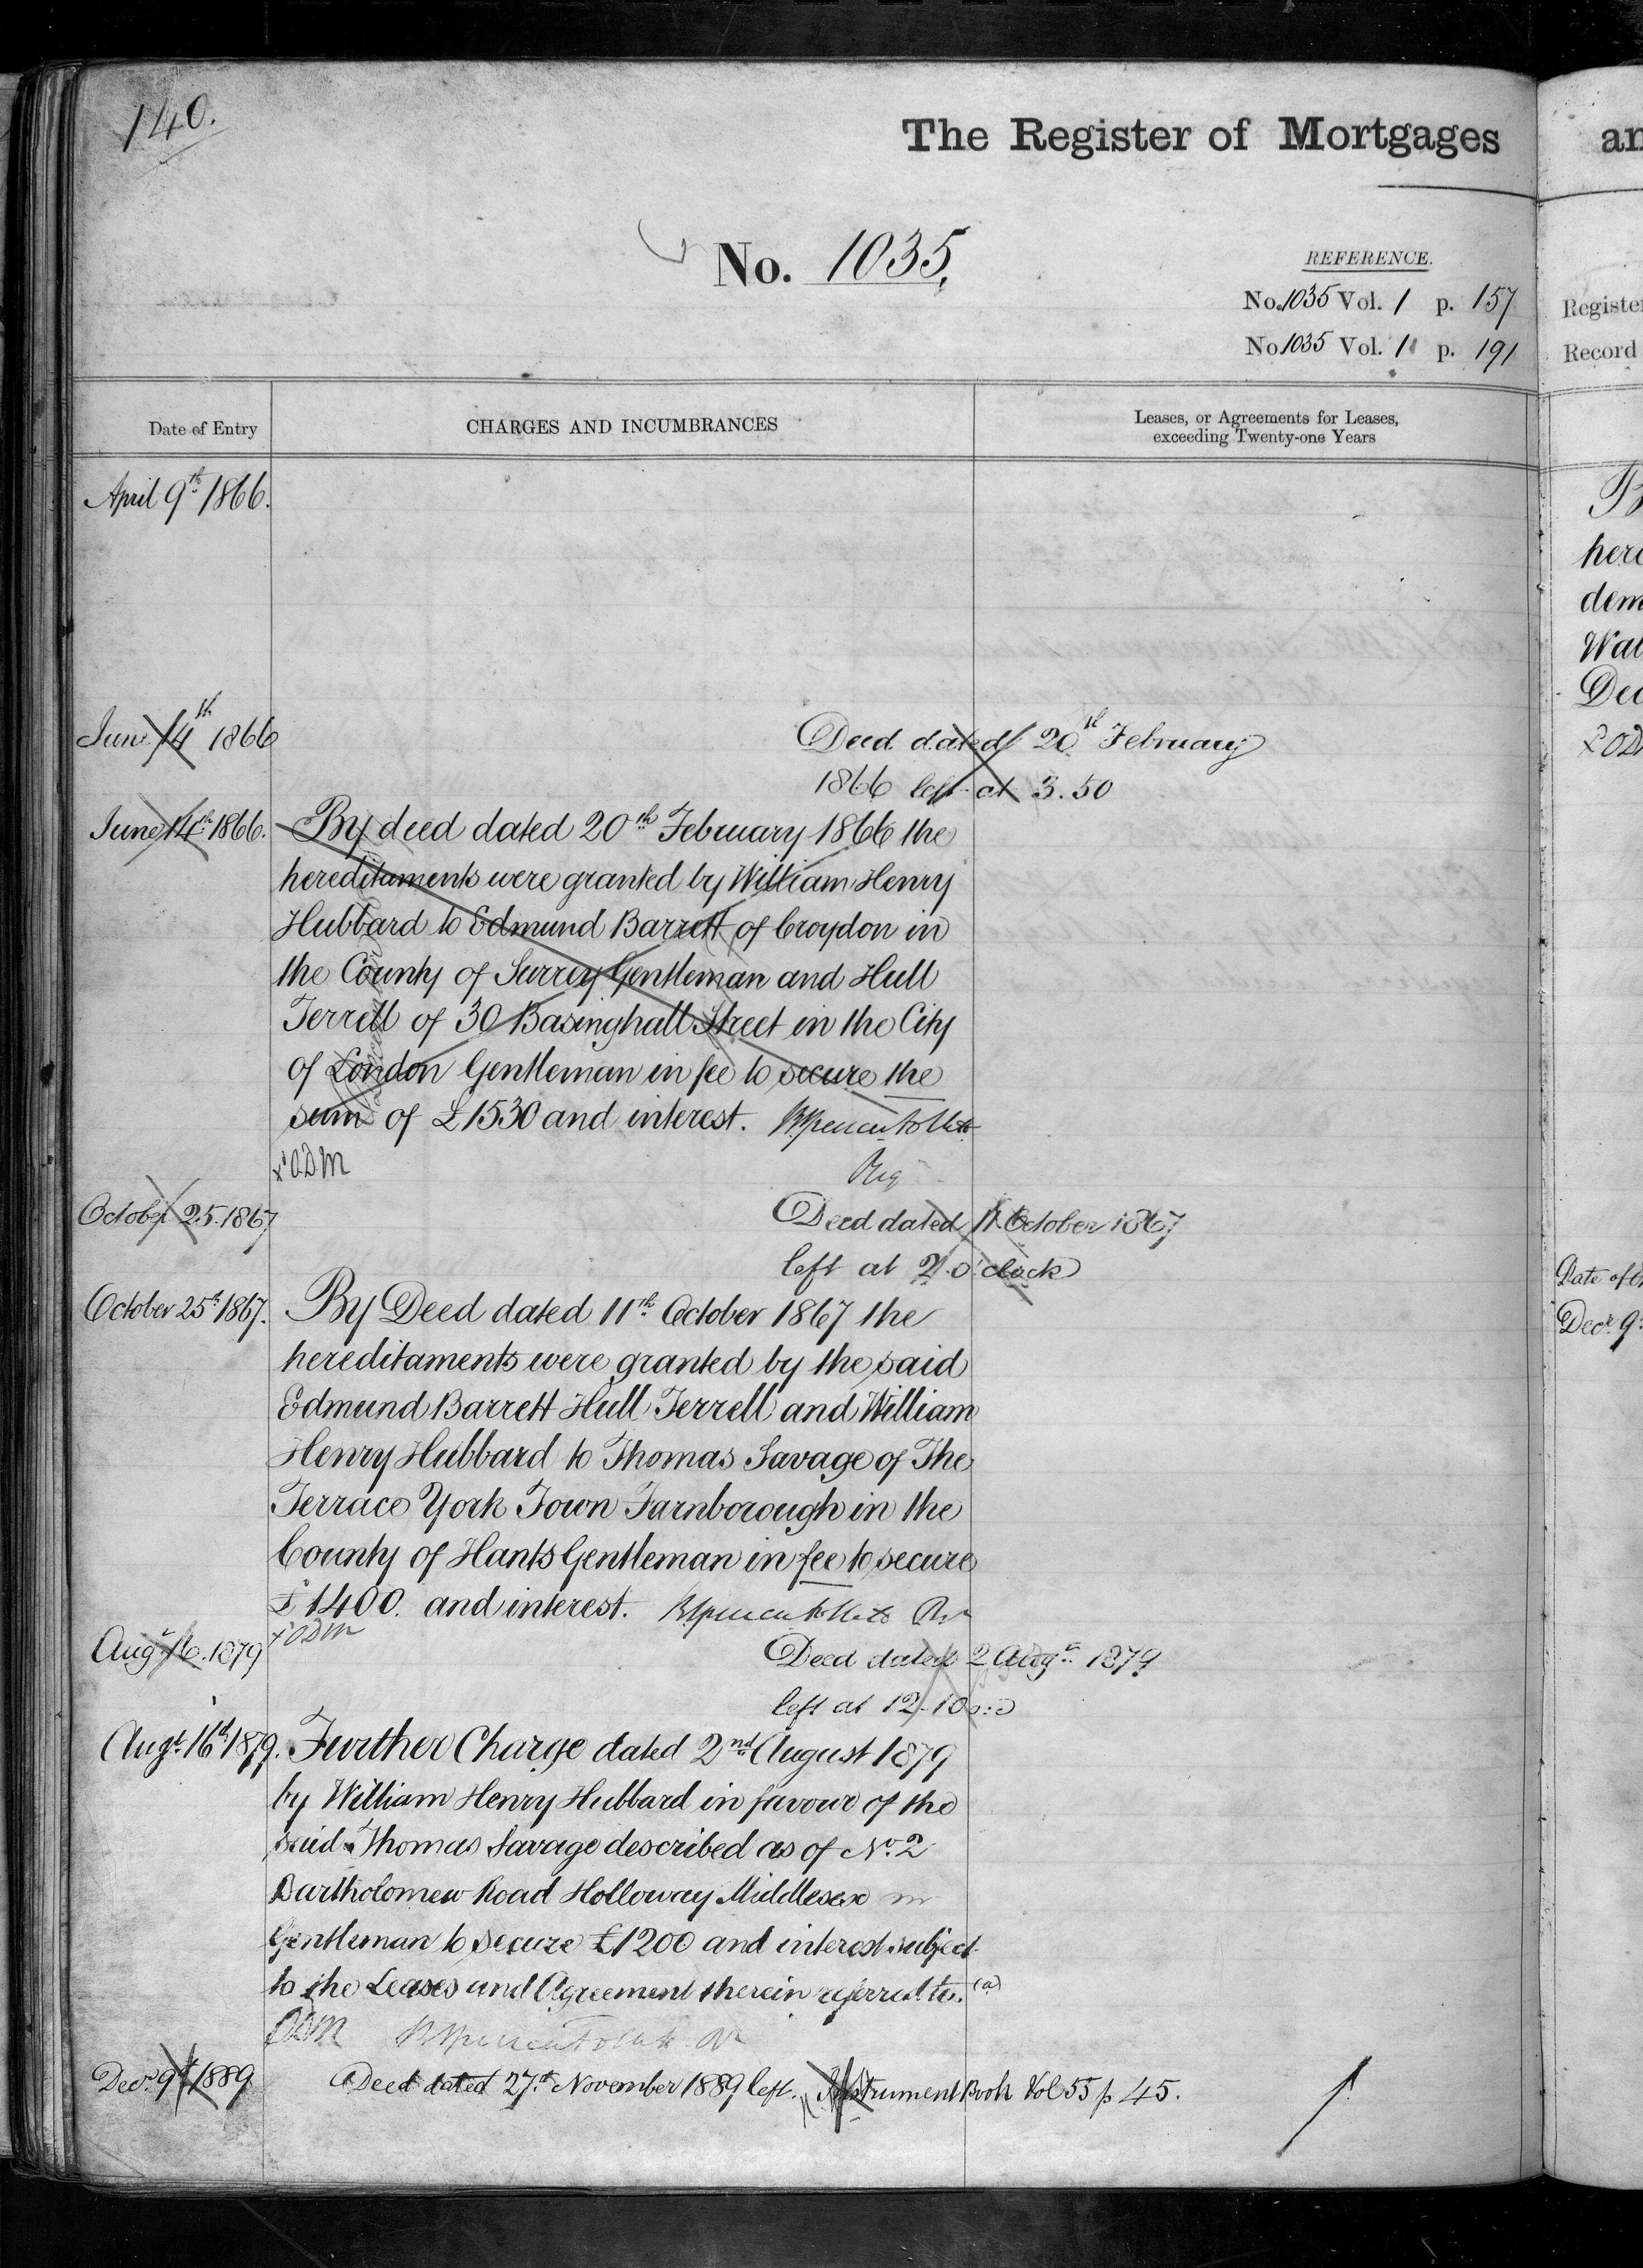 140.
The Register of Mortgages
an
No. 1035.
REFERENCE.
No. 1035 Vol. 1 p. 157
No 1035 Vol. 1 p. 191
Register
Record
Date of Entry
CHARGES AND INCUMBRANCES
Leases, or Agreements for Leases,
exceeding Twenty-one Years
April 9th 1866.
here
dem
June 14th 1866
Deed dated 20th February
1866 left at 3.50
June 14th 1866.
By deed dated 20th February 1866 the
hereditaments were granted by William Henry
Hubbard to Edmund Barrett of Croydon in
the County of Surrey Gentleman and Hull
Terrell of 30 Basinghall Street in the City
of London Gentleman in fee to secure the
sum of £1530 and interest.
Reg
xd ODM
October 25. 1867
Deed dated 11 October 1867
left at 2 o'clock
October 25th 1867.
By Deed dated 11th October 1867 the
hereditaments were granted by the said
Edmund Barrett Hull Terrell and William
Henry Hubbard to Thomas Savage of The
Terrace York Town Farnborough in the
County of Hants Gentleman in fee to secure
£1400. and interest.
xd ODM
Date of
Decr 9
Augt 16. 1879
Deed dated 2 Augst 1879
left at 12.10
Augt 16th 1879.
Further Charge dated 2nd August 1879
by William Henry Hubbard in favour of the
said Thomas Savage described as of No. 2
Bartholomew Road Holloway Middlesex
Gentleman to secure £1200 and interest subject
to the Leases and Agreement therein referred to. (a)
ODM
Decr 9th 1889
Deed dated 27th November 1889 left. Instrument Book Vol 55 p 45.